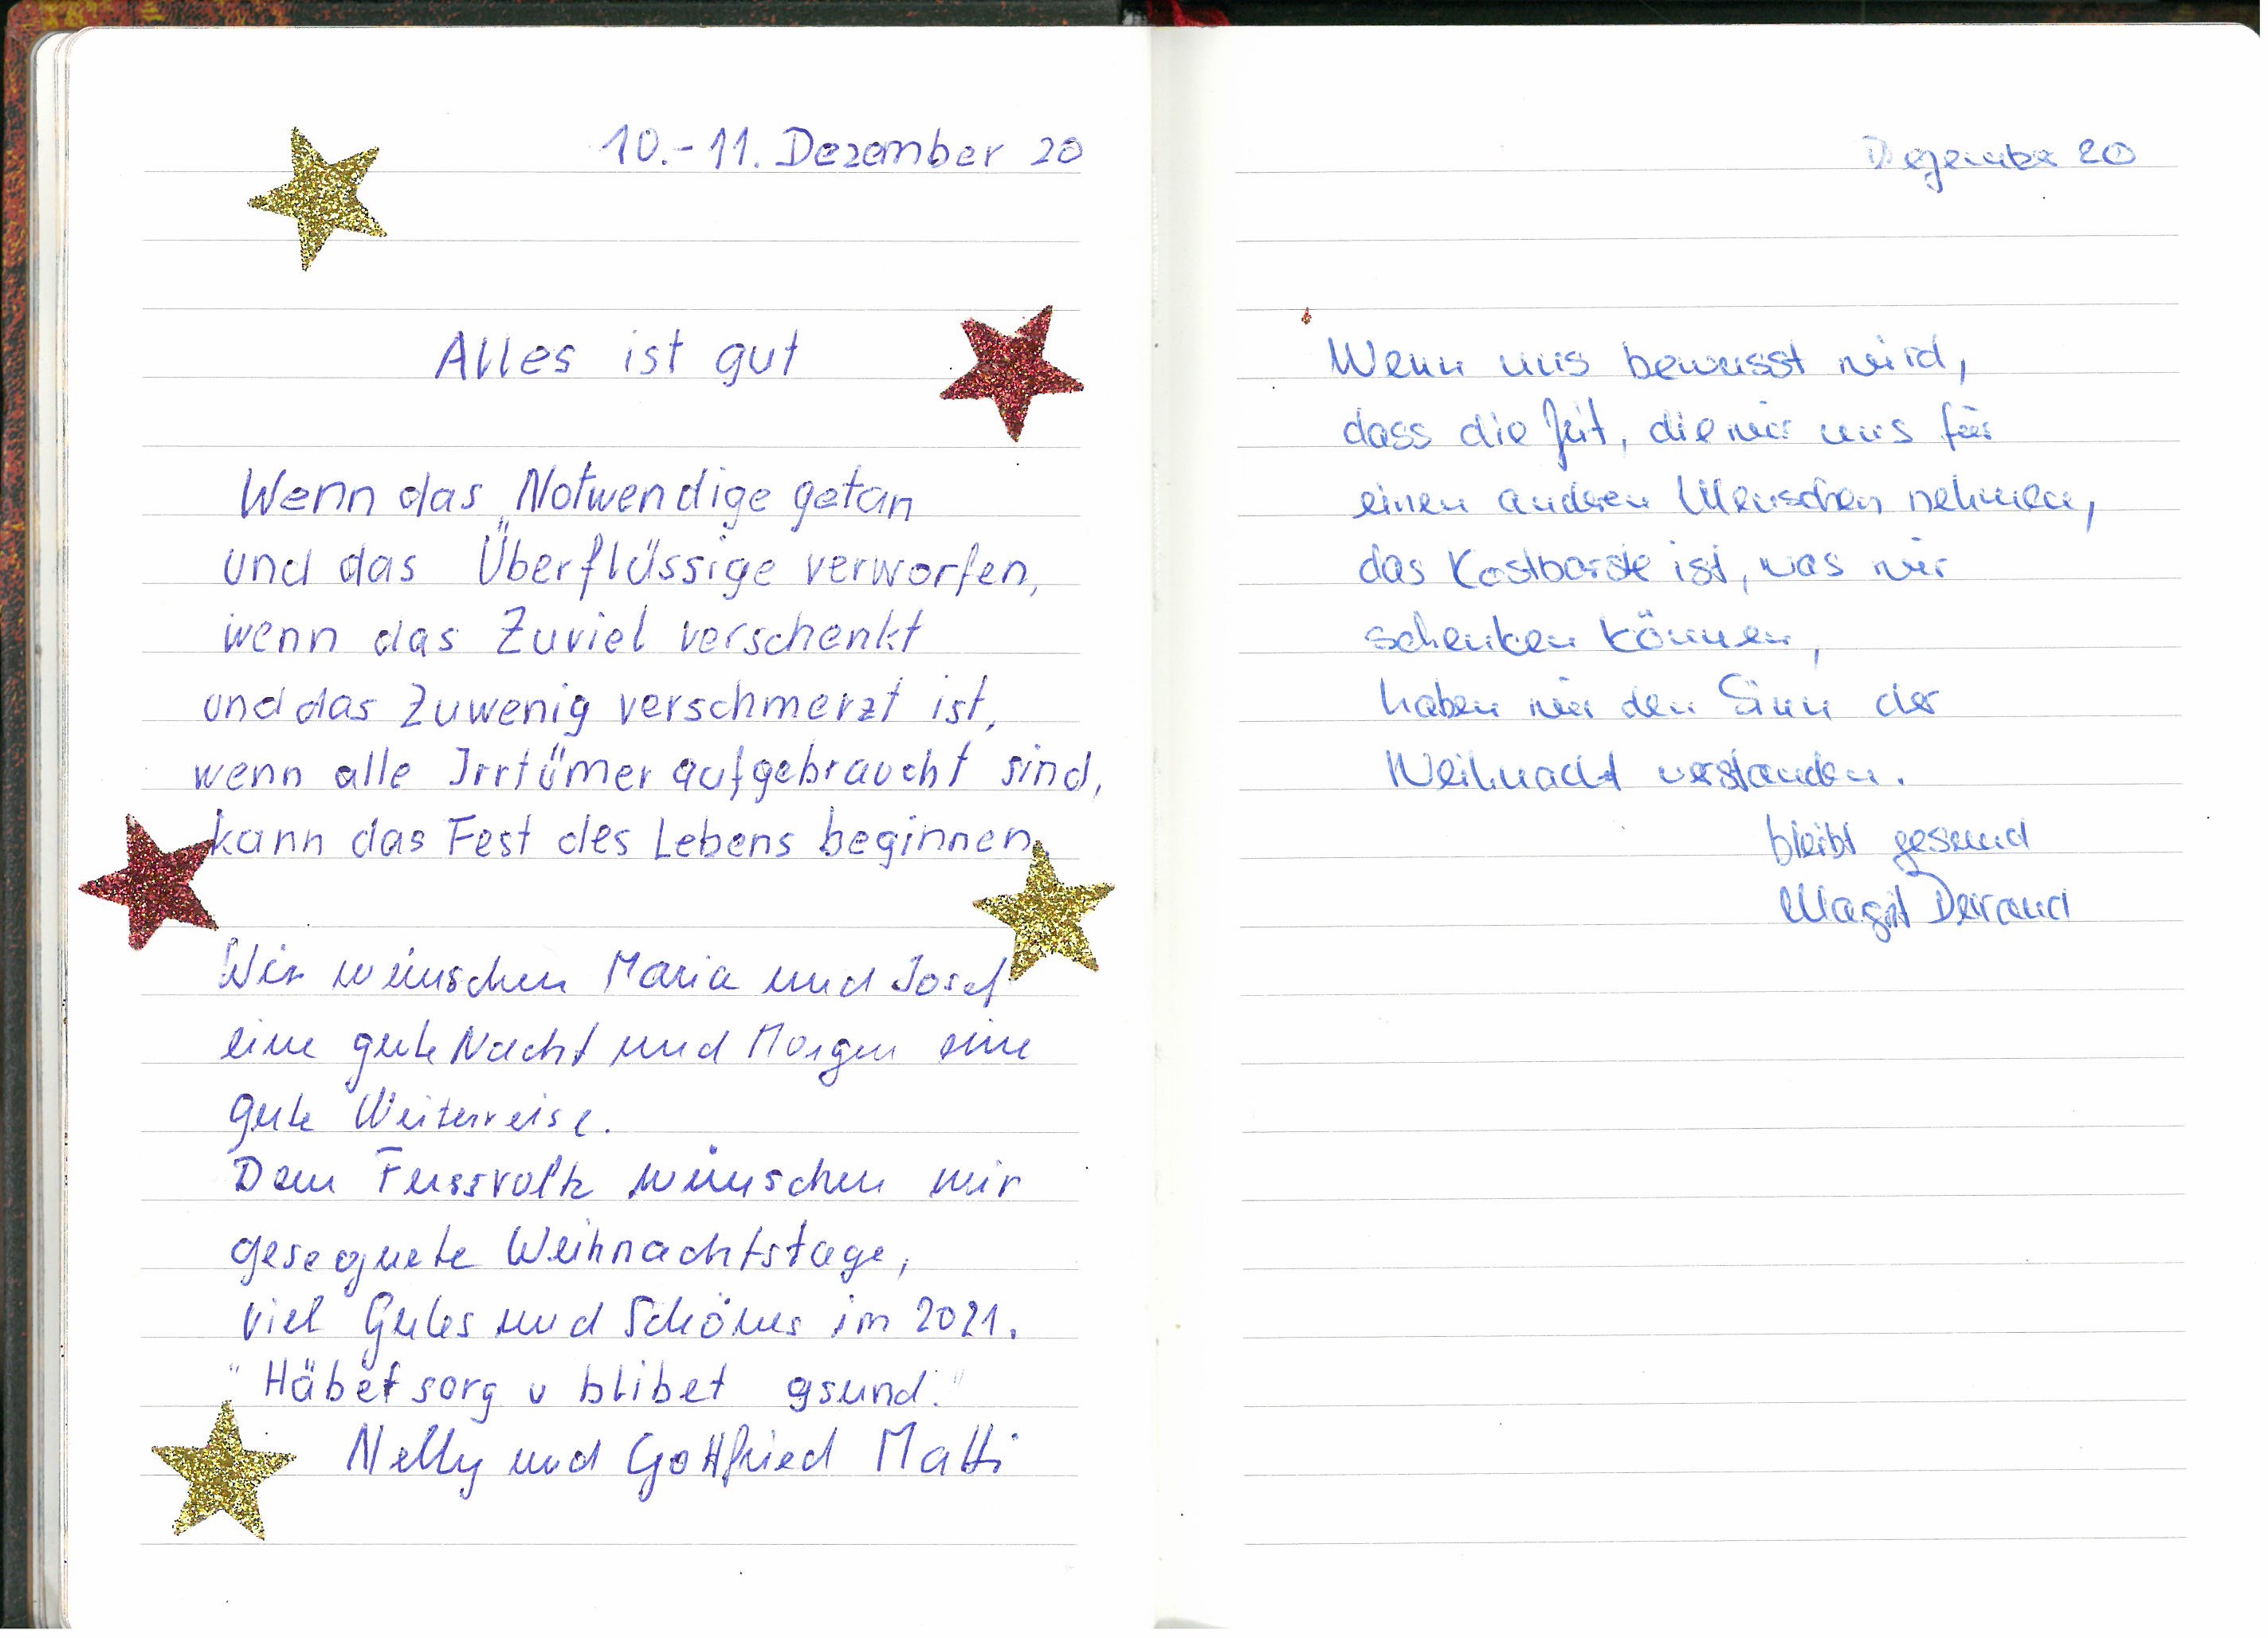 10.-11. Dezember 20
Alles ist gut
Wenn das Notwendige getan
und das Überflüssige verworfen,
wenn das Zuviel verschenkt
und das Zuwenig verschmerzt ist,
wenn alle Irrtümer aufgebraucht sind,
kann das Fest des Lebens beginnen.
Wir wünschen Maria und Josef
eine gute Nacht und Morgen eine
gute Weiterreise.
Dem Fussvolk wünschen wir
gesegnete Weihnachtstage,
viel Gutes und Schönes im 2021.
"Häbet sorg u blibet gsund."
Nelly und Gottfried Matti
Dezember 20
Wenn uns bewusst wird,
dass die Zeit, die wir uns für
einen anderen Menschen nehmen,
das Kostbarste ist, was wir
schenken können,
haben wir den Sinn der
Weihnacht verstanden.
bleibt gesund
Margit